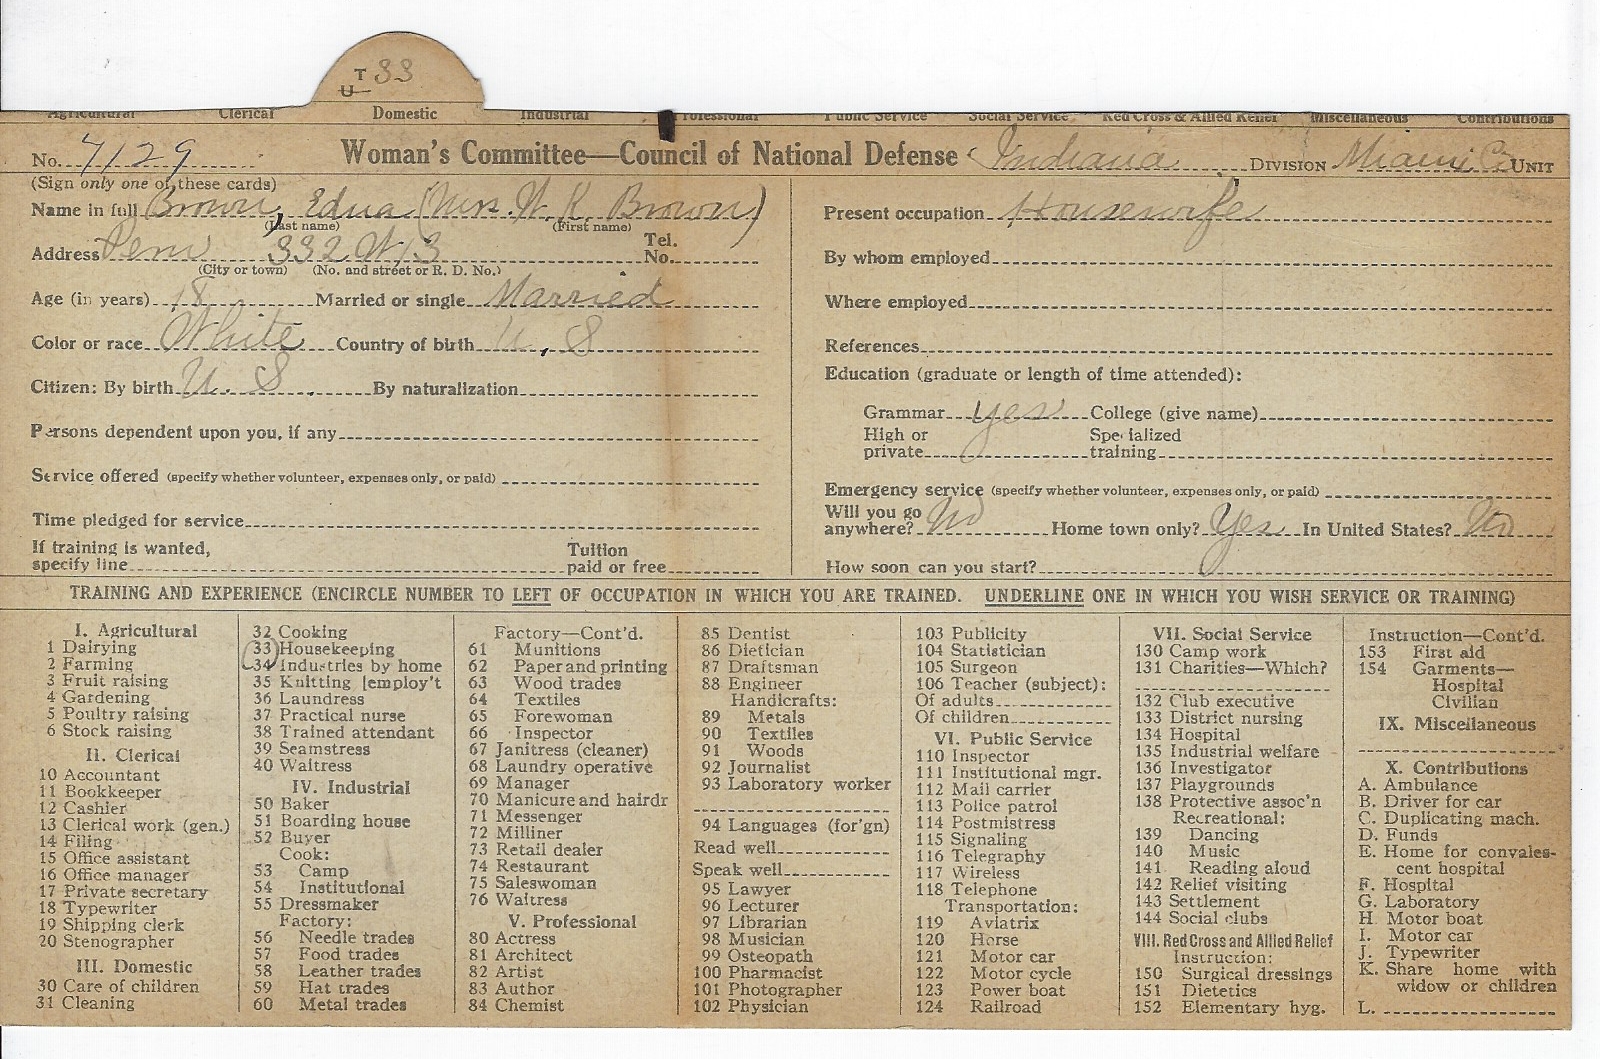 T 33
U
Agricultural Clerical Domestic Industrial Professional Public Service Social Service Red Cross & Allied Relief Miscellaneous Contributions
No. 7129 Woman's Committee—Council of National Defense Indiana DIVISION Miami Co. UNIT
(Sign only one of these cards)
Name in full Brown, Edna (Mrs. W. K. Brown)
(Last name) (First name)
Address Peru 332 W 3 Tel. No.
(City or town) (No. and street or R. D. No.)
Age (in years) 18 Married or single Married
Color or race White Country of birth U. S
Citizen: By birth U. S. By naturalization
Persons dependent upon you, if any
Service offered (specify whether volunteer, expenses only, or paid)
Time pledged for service
If training is wanted, specify line Tuition paid or free
Present occupation Housewife
By whom employed
Where employed
References
Education (graduate or length of time attended):
Grammar yes College (give name)
High or private Specialized training
Emergency service (specify whether volunteer, expenses only, or paid)
Will you go anywhere? No Home town only? Yes In United States? No
How soon can you start?
TRAINING AND EXPERIENCE (ENCIRCLE NUMBER TO LEFT OF OCCUPATION IN WHICH YOU ARE TRAINED. UNDERLINE ONE IN WHICH YOU WISH SERVICE OR TRAINING)
I. Agricultural
1 Dairying
2 Farming
3 Fruit raising
4 Gardening
5 Poultry raising
6 Stock raising
II. Clerical
10 Accountant
11 Bookkeeper
12 Cashier
13 Clerical work (gen.)
14 Filing
15 Office assistant
16 Office manager
17 Private secretary
18 Typewriter
19 Shipping clerk
20 Stenographer
III. Domestic
30 Care of children
31 Cleaning
32 Cooking
33 Housekeeping
34 Industries by home
35 Knitting [employ't
36 Laundress
37 Practical nurse
38 Trained attendant
39 Seamstress
40 Waitress
IV. Industrial
50 Baker
51 Boarding house
52 Buyer
Cook:
53 Camp
54 Institutional
55 Dressmaker
Factory:
56 Needle trades
57 Food trades
58 Leather trades
59 Hat trades
60 Metal trades
Factory—Cont'd.
61 Munitions
62 Paper and printing
63 Wood trades
64 Textiles
65 Forewoman
66 Inspector
67 Janitress (cleaner)
68 Laundry operative
69 Manager
70 Manicure and hairdr
71 Messenger
72 Milliner
73 Retail dealer
74 Restaurant
75 Saleswoman
76 Waitress
V. Professional
80 Actress
81 Architect
82 Artist
83 Author
84 Chemist
85 Dentist
86 Dietician
87 Draftsman
88 Engineer
Handicrafts:
89 Metals
90 Textiles
91 Woods
92 Journalist
93 Laboratory worker
94 Languages (for'gn)
Read well
Speak well
95 Lawyer
96 Lecturer
97 Librarian
98 Musician
99 Osteopath
100 Pharmacist
101 Photographer
102 Physician
103 Publicity
104 Statistician
105 Surgeon
106 Teacher (subject):
Of adults
Of children
VI. Public Service
110 Inspector
111 Institutional mgr.
112 Mail carrier
113 Police patrol
114 Postmistress
115 Signaling
116 Telegraphy
117 Wireless
118 Telephone
Transportation:
119 Aviatrix
120 Horse
121 Motor car
122 Motor cycle
123 Power boat
124 Railroad
VII. Social Service
130 Camp work
131 Charities—Which?
132 Club executive
133 District nursing
134 Hospital
135 Industrial welfare
136 Investigator
137 Playgrounds
138 Protective assoc'n
Recreational:
139 Dancing
140 Music
141 Reading aloud
142 Relief visiting
143 Settlement
144 Social clubs
VIII. Red Cross and Allied Relief
Instruction:
150 Surgical dressings
151 Dietetics
152 Elementary hyg.
Instruction—Cont'd.
153 First aid
154 Garments—
Hospital
Civilian
IX. Miscellaneous
X. Contributions
A. Ambulance
B. Driver for car
C. Duplicating mach.
D. Funds
E. Home for convales-
cent hospital
F. Hospital
G. Laboratory
H. Motor boat
I. Motor car
J. Typewriter
K. Share home with
widow or children
L.